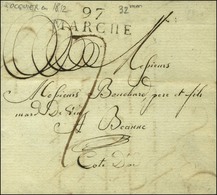 97
MARCHE
32
Messieurs
Messieurs Bouchard pere et fils
mard De Vin
Beaune
Cote d'or